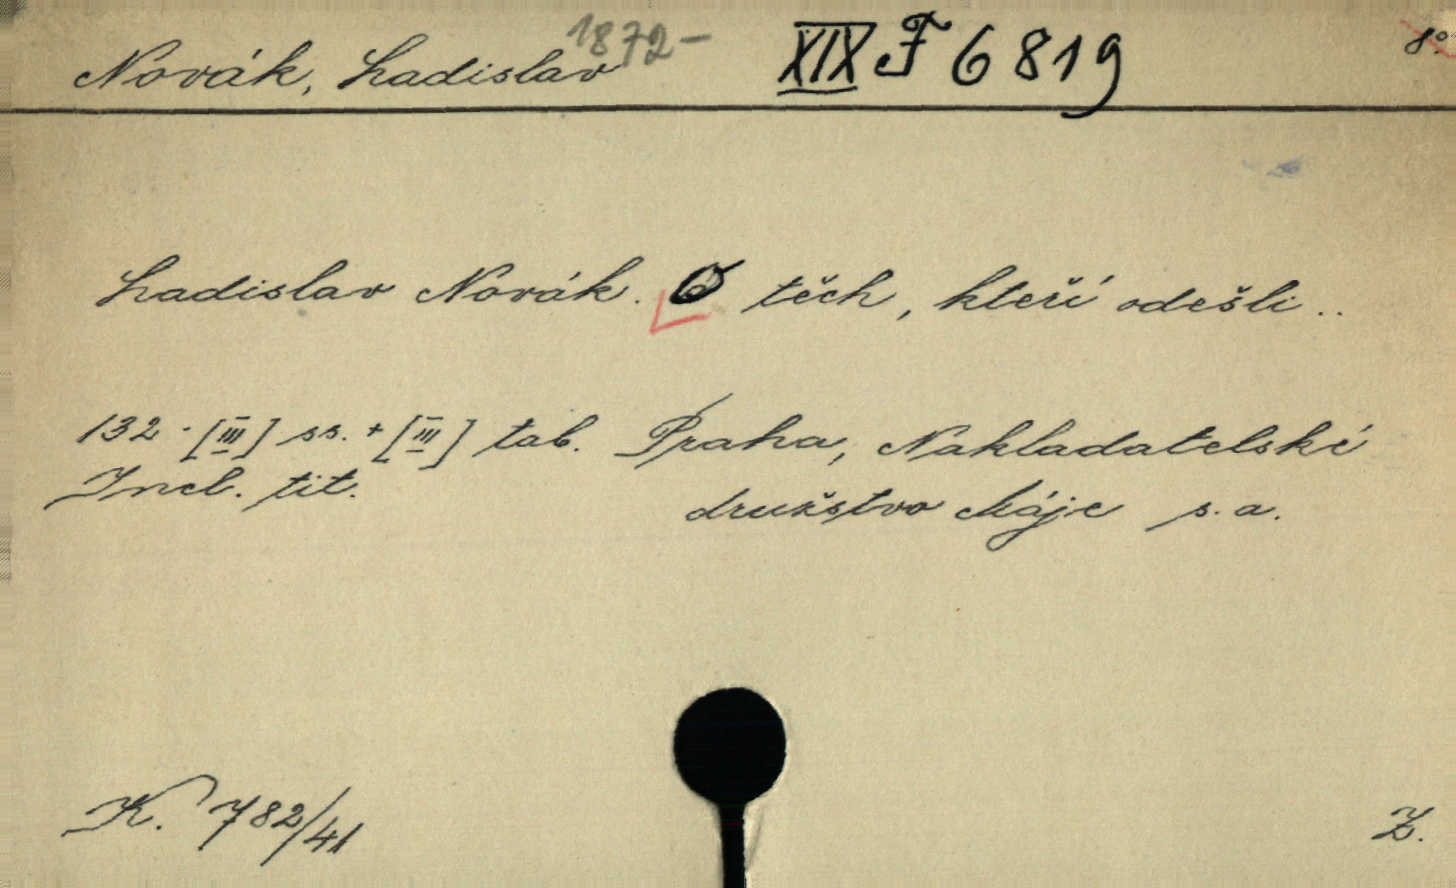 Novák, Ladislav 1872- XIX F 6819 8°.
Ladislav Novák. O těch, kteří odešli..
132 - [III] ss. + [III] tab. Praha, Nakladatelské
Incl. tit. družstvo Máje s. a.
K. 782/41 Z.